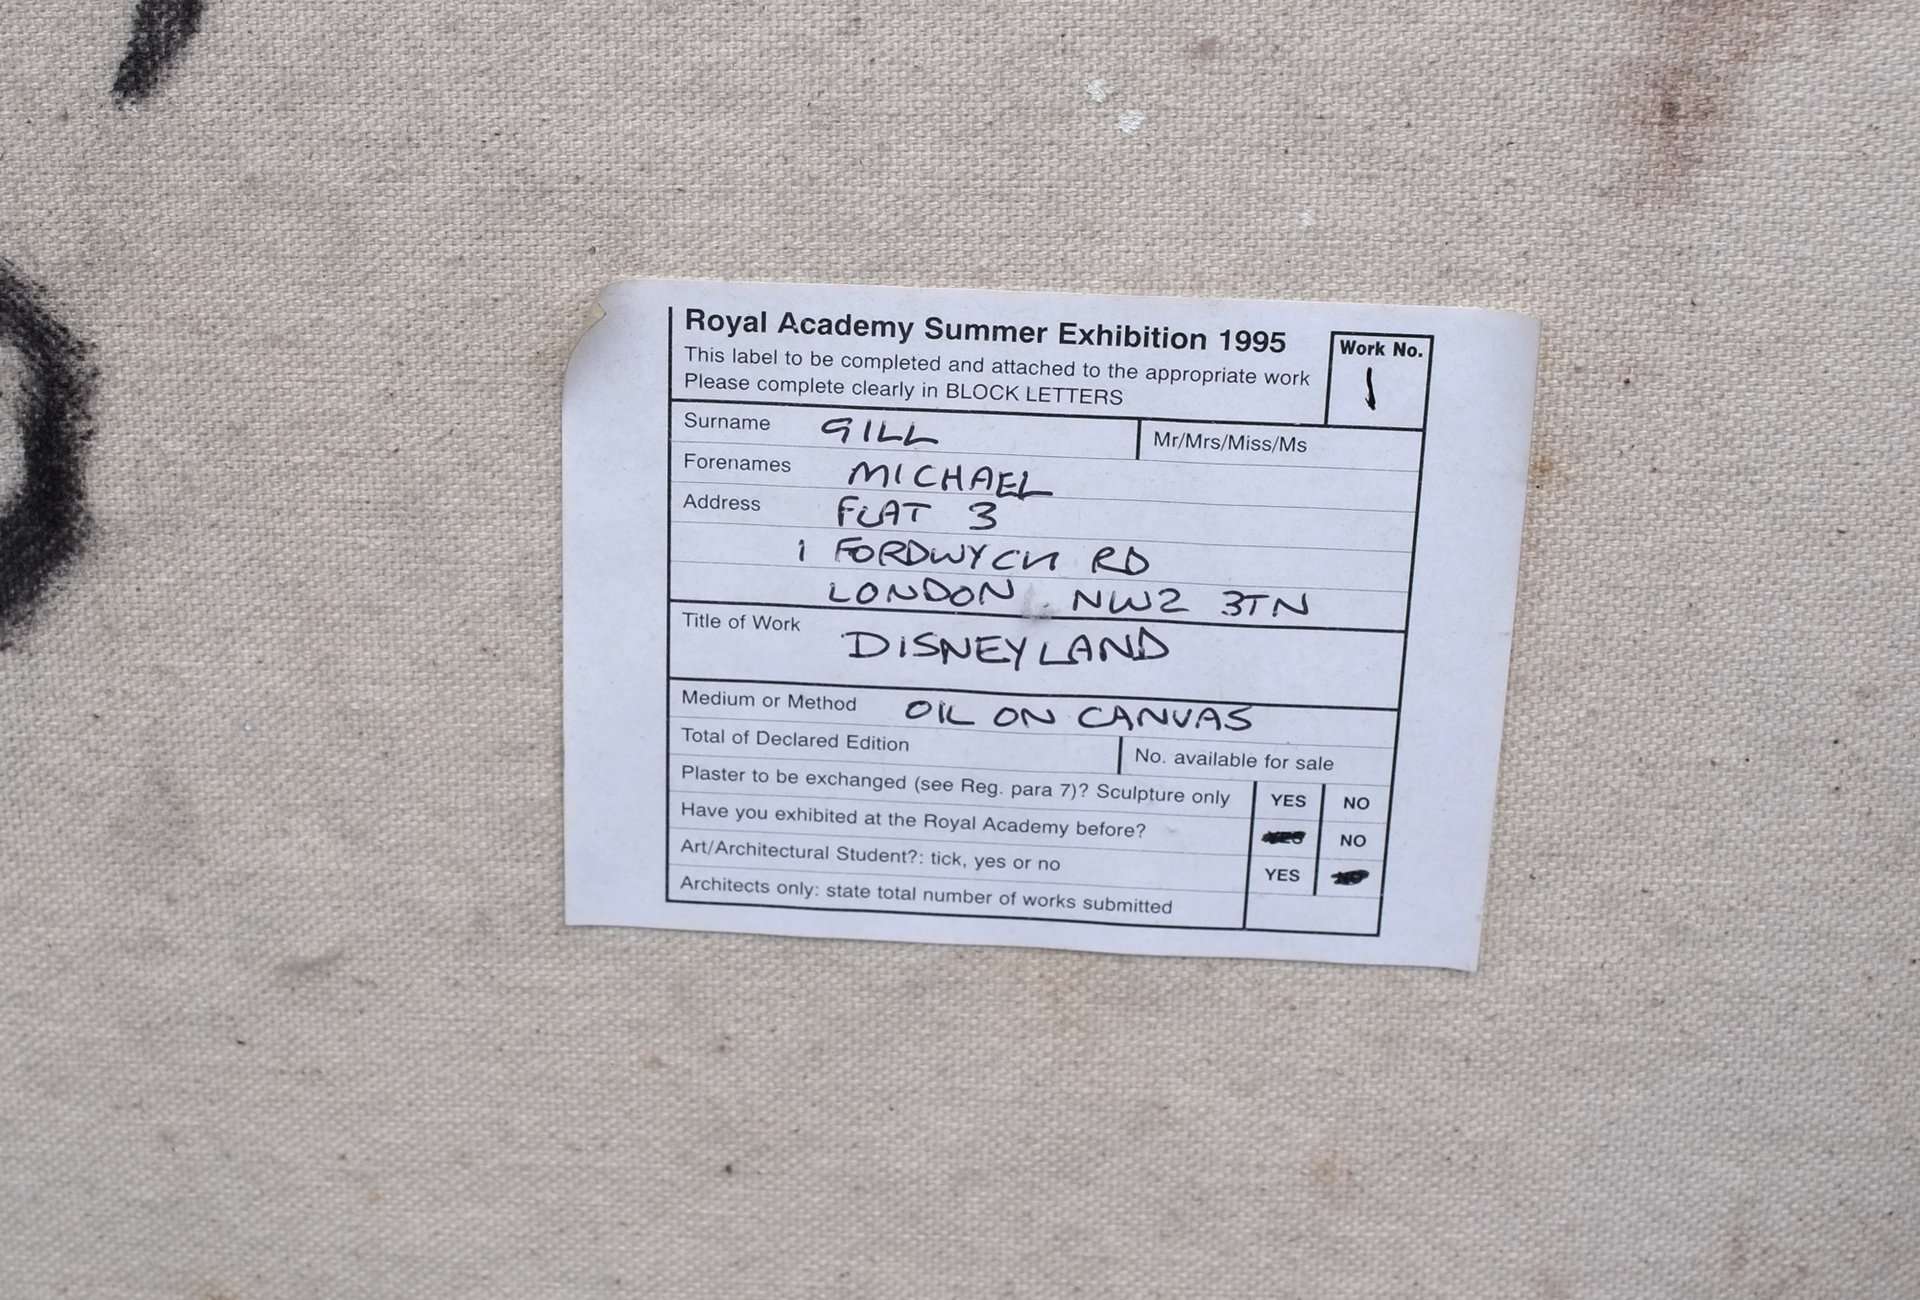 Royal Academy Summer Exhibition 1995
Work No.
This label to be completed and attached to the appropriate work
1
Please complete clearly in BLOCK LETTERS
Surname GILL Mr/Mrs/Miss/Ms
Forenames MICHAEL
Address FLAT 3
1 FORDWYCH RD
LONDON. NW2 3TN
Title of Work DISNEYLAND
Medium or Method OIL ON CANVAS
Total of Declared Edition No. available for sale
Plaster to be exchanged (see Reg. para 7)? Sculpture only YES NO
Have you exhibited at the Royal Academy before? NO
Art/Architectural Student?: tick, yes or no YES
Architects only: state total number of works submitted